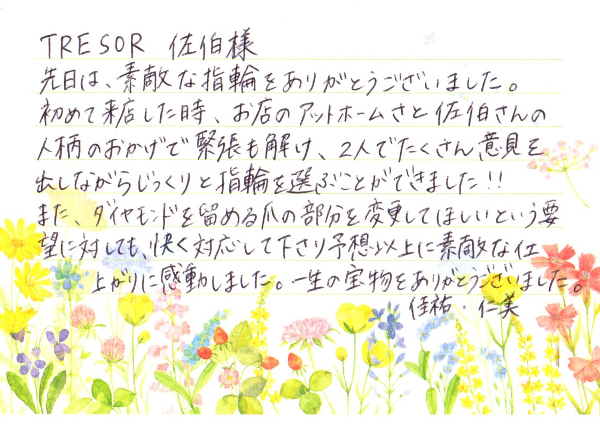 TRESOR 佐伯様
先日は、素敵な指輪をありがとうございました。
初めて来店した時、お店のアットホームさと佐伯さんの
人柄のおかげで緊張も解け、2人でたくさん意見を
出しながらじっくりと指輪を選ぶことができました!!
また、ダイヤモンドを留める爪の部分を変更してほしいという要
望に対しても、快く対応して下さり予想以上に素敵な仕
上がりに感動しました。一生の宝物をありがとうございました。
佳祐・仁美